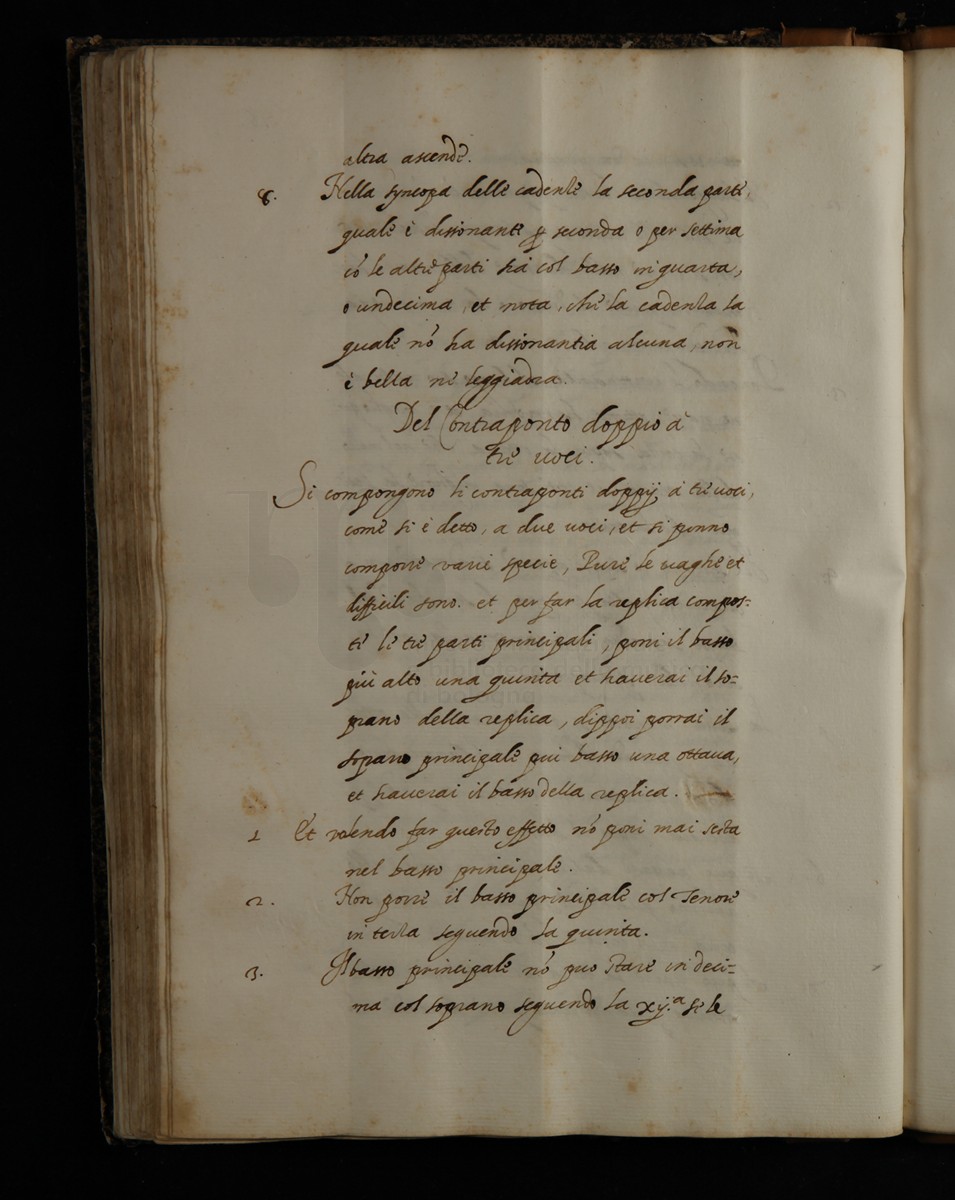 altra ascende.
8. Nella syncopa delle cadenze la seconda parte,
quale è dissonante p seconda o per settima
cō le altre parti ha col basso in quarta,
o undecima, et nota, che la cadenza la
quale nō ha dissonantia alcuna, non
è bella ne leggiadra.
Del Contraponto doppio à
tre uoci.
Si compongono li contraponti doppij à tre uoci,
come si è detto, a due uoci, et si ponno
comporre varie specie, Pure le uaghe et
difficili sono. et per far la replica compos=
te le tre parti principali, poni il basso
più alto una quinta et hauerai il so=
prano della replica, dippoi porrai il
soprano principale più basso una ottaua,
et hauerai il basso della replica.
1 Et uolendo far questo effetto nō poni mai sesta
nel basso principale.
2. Non porre il basso principale col Tenore
in terza seguendo la quinta.
3. Il basso principale nō puo stare in deci=
ma col soprano seguendo la xij.a se le